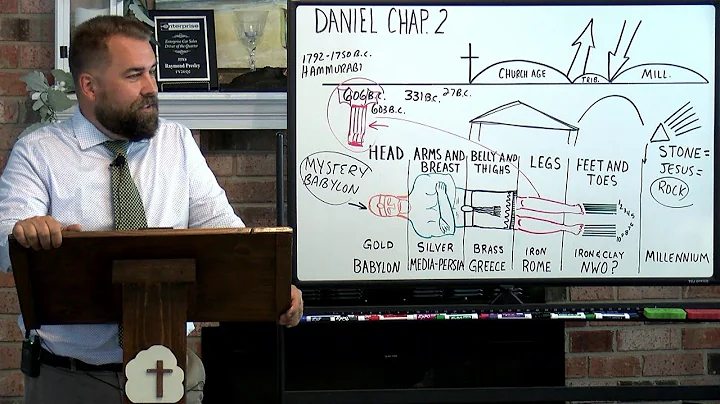 enterprise
Enterprise Car Sales
Driver of the Quarter
Raymond Presley
DANIEL CHAP. 2
1792-1750 B.C.
HAMMURABI
606 B.C.
603 B.C.
331 B.C.
27 B.C.
CHURCH AGE
TRIB.
MILL.
MYSTERY
BABYLON
HEAD
ARMS AND
BREAST
BELLY AND
THIGHS
LEGS
FEET AND
TOES
STONE =
JESUS =
ROCK
GOLD
BABYLON
SILVER
MEDIA-PERSIA
BRASS
GREECE
IRON
ROME
IRON & CLAY
NWO?
MILLENNIUM